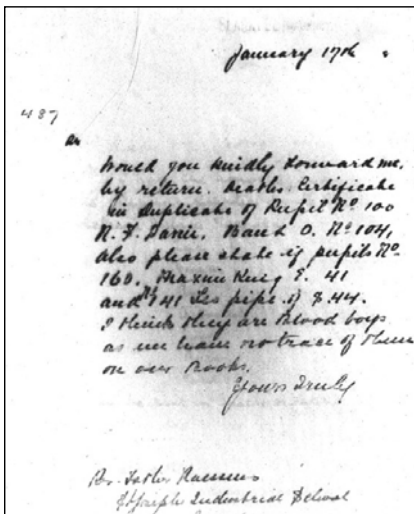 January 17th
487
Would you kindly forward me,
by return. Deaths Certificate
in Duplicate of Pupil No 100
Band O. No 104,
Also please state if pupils No.
160. King E. 41
and 141 pipe if
I think they are Blood boys
as we have no trace of them
on our Books.
Yours Truly
Father
St Joseph Industrial School